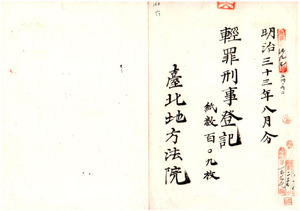 明治三十三年八月分
輕罪刑事登記
紙数百〇九枚
臺北地方法院